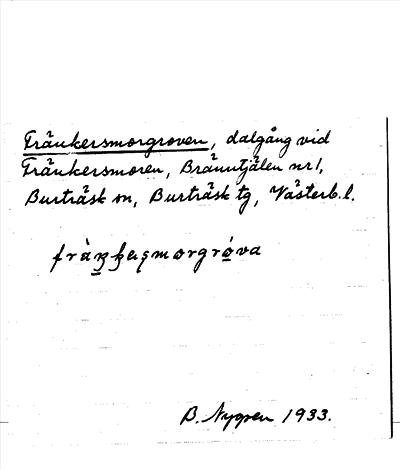 Fränkersmorgroven, dalgång vid
Fränkersmoren, Bränntjälen nr 1,
Burträsk sn, Burträsk tg, Västerb. l.
B. Nygren 1933.